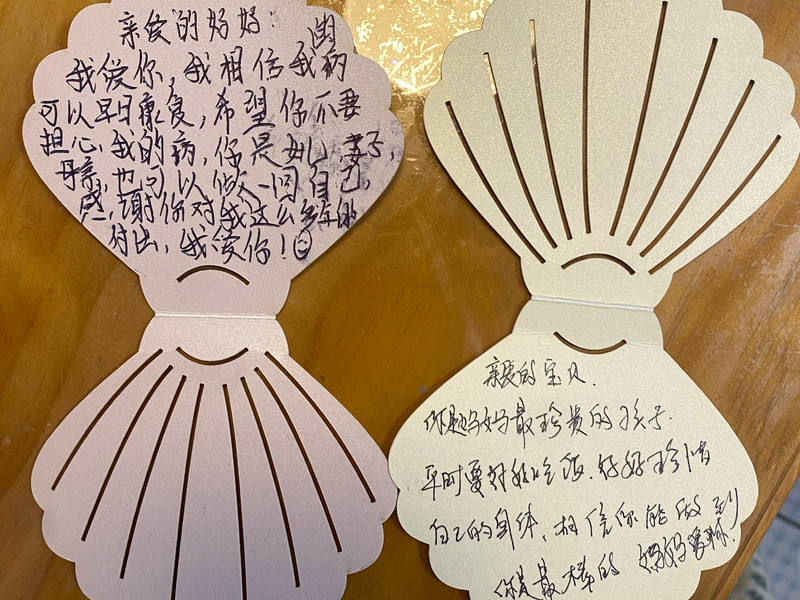 亲爱的妈妈:
我爱你,我相信我的病
可以早日康复,希望你不要
担心我的病,你是女儿,妻子,
母亲,也可以做一回自己,
感谢你对我这么多年的
付出,我爱你!
亲爱的宝贝.
你是妈妈最珍贵的孩子.
平时要好好吃饭.好好珍惜
自己的身体,相信你能做到
你是最棒的 妈妈爱你.